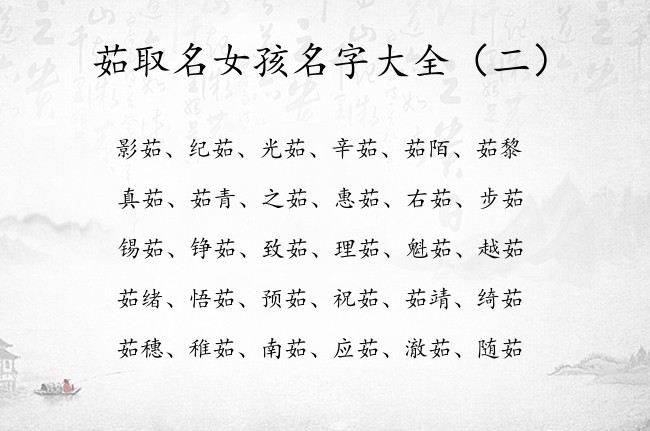 茹取名女孩名字大全（二）
影茹、纪茹、光茹、辛茹、茹陌、茹黎
真茹、茹青、之茹、惠茹、右茹、步茹
锡茹、铮茹、致茹、理茹、魁茹、越茹
茹绪、悟茹、预茹、祝茹、茹靖、绮茹
茹穗、稚茹、南茹、应茹、澈茹、随茹